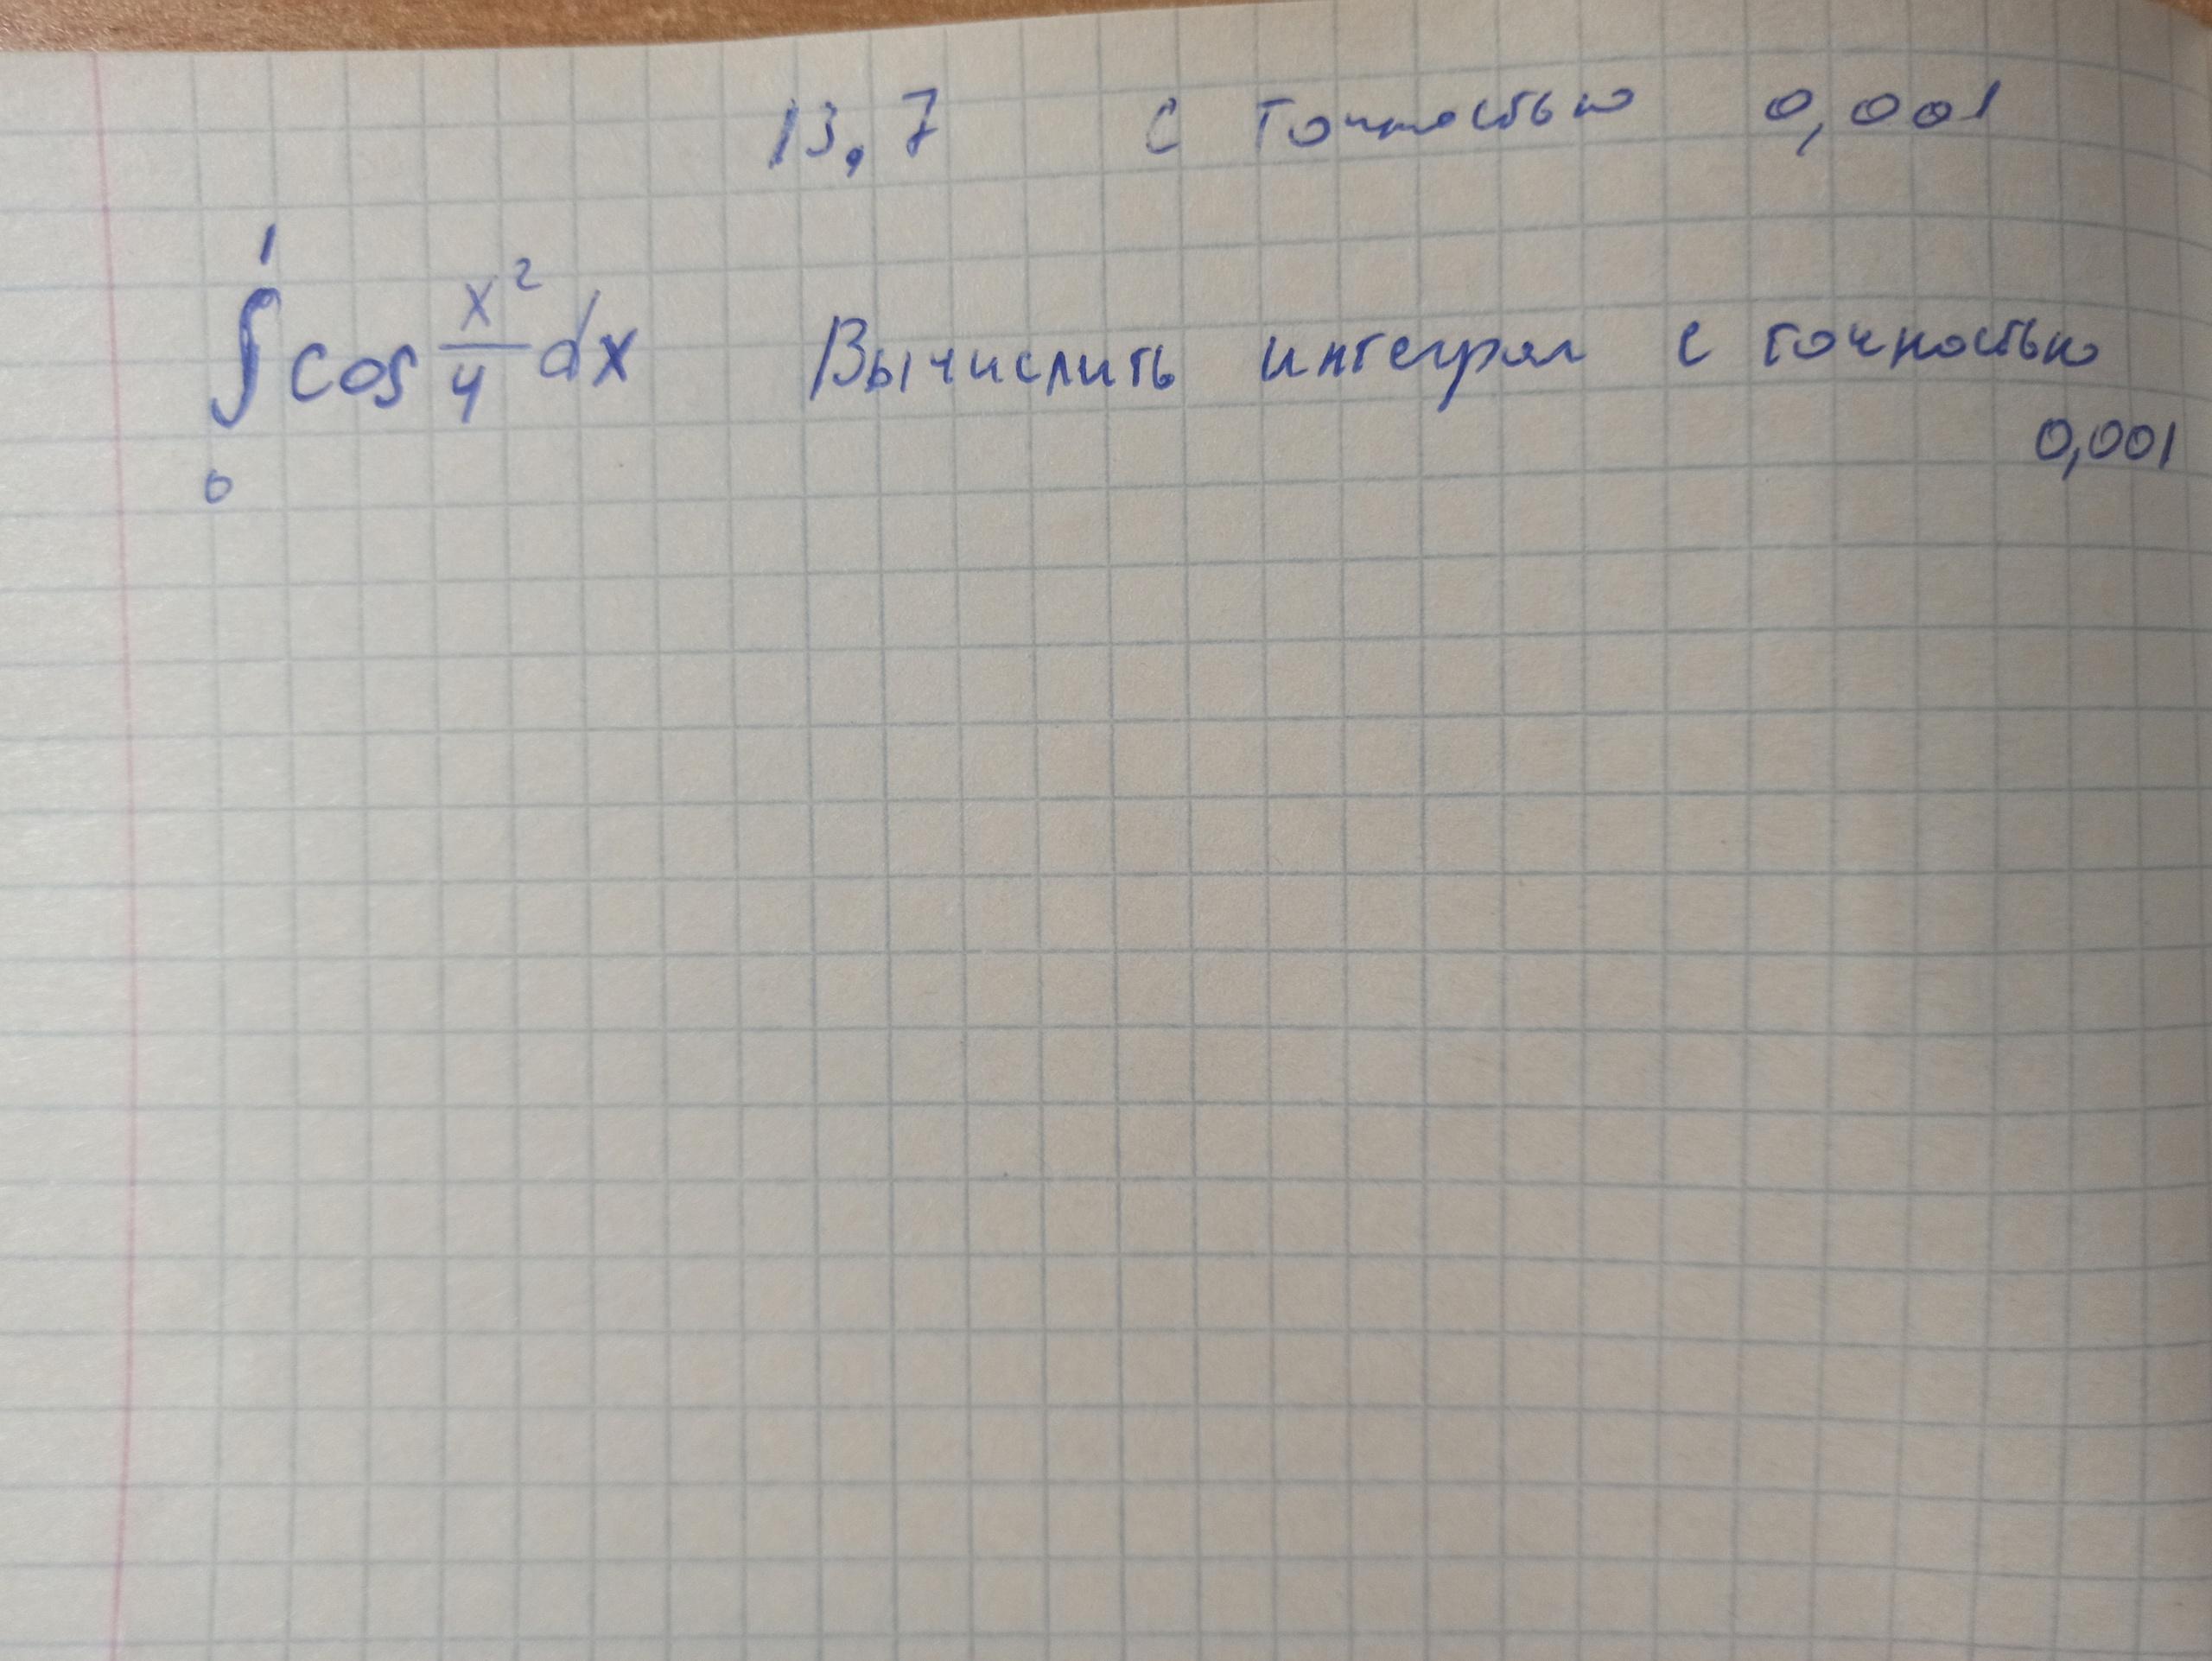 13.7 с точностью 0,001
∫₀¹ cos x²/4 dx Вычислить интеграл с точностью
0,001